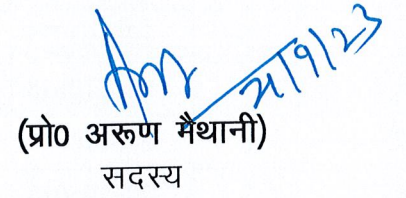 21/9/23
(प्रो0 अरूण मैथानी)
सदस्य